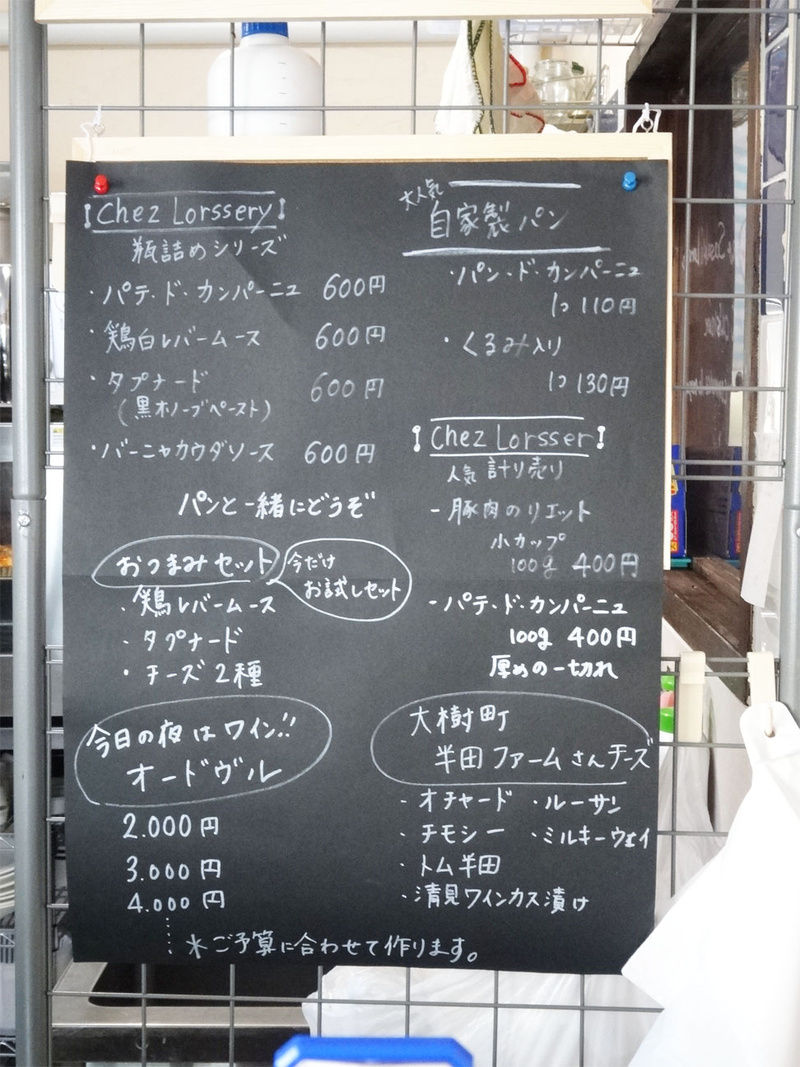 Chez Lorssery
瓶詰めシリーズ
・パテ・ド・カンパーニュ 600円
・鶏白レバームース 600円
・タプナード 600円
(黒オリーブペースト)
・バーニャカウダソース 600円
パンと一緒にどうぞ
おつまみセット
今だけ
お試しセット
・鶏レバームース
・タプナード
・チーズ2種
今日の夜はワイン!!
オードヴル
2.000円
3.000円
4.000円
*ご予算に合わせて作ります。
大人気
自家製パン
・パン・ド・カンパーニュ
1コ 110円
・くるみ入り
1コ 130円
Chez Lorsser
人気 計り売り
- 豚肉のリエット
小カップ
100g 400円
- パテ・ド・カンパーニュ
100g 400円
厚めの一切れ
大樹町
半田ファームさんチーズ
・オチャード ・ルーサン
・チモシー ・ミルキーウェイ
・トム半田
・清見ワインカス漬け